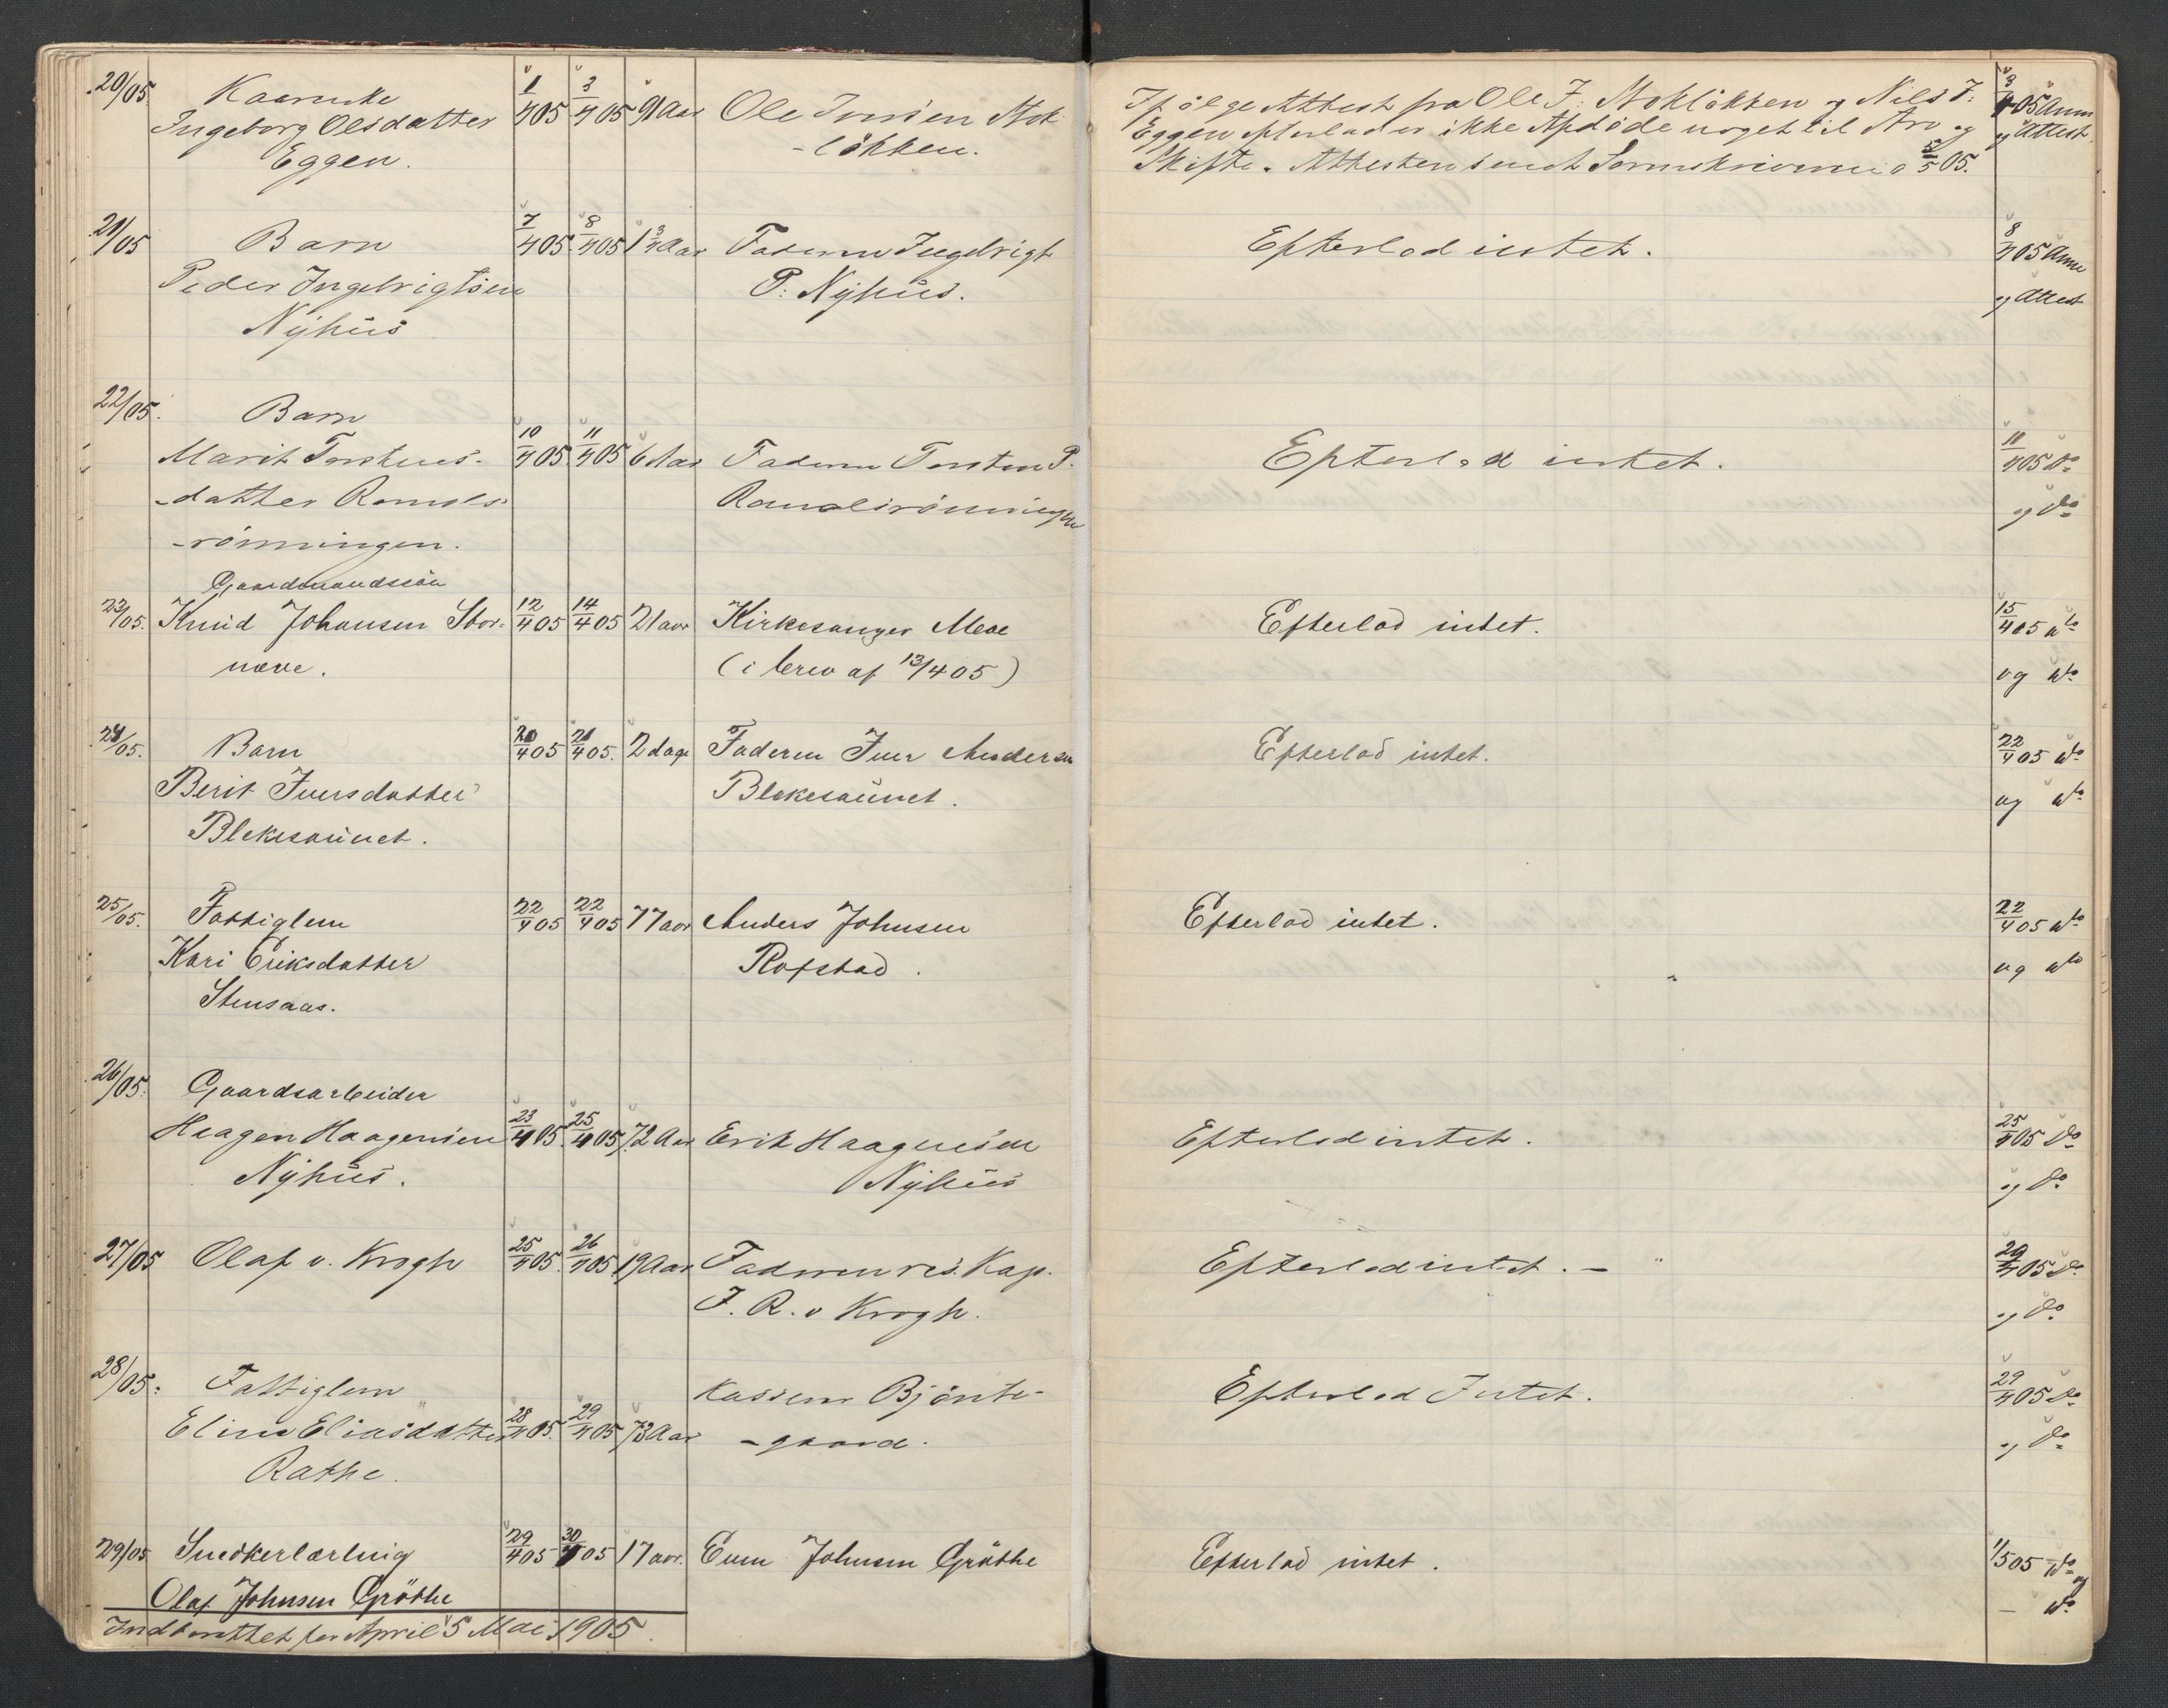 20/05 Kaarenke 1/4 05 3/4 05 91 Aar Ole Jonsen Mok- Ifølge Attest fra Ole J. Mokløkken og Nils J: 3/4 05 Anm
Ingeborg Olsdatter -løkken. Eggen efterlader ikke Afdøde noget til Arv og og Attest
Eggen. Skifte. Attesten sendt Sorenskriveren 5/5 05.
21/05 Barn 7/4 05. 8/4 05 1 3/4 Aar Faderen Ingebrigt Efterlod intet. 8/4 05 Anm
Peder Ingebrigtsen P. Nyhus. og Attest
Nyhus
22/05. Barn
Marit Torstens- 10/4 05 11/4 05 6 Aar Faderen Torsten P. Efterlod intet. 11/4 05 do
-datter Ramls- Ramlsrønningen og do
-rønningen.
Gaardmandssøn
23/05. Knud Johansen Stor- 12/4 05 14/4 05 21 aar Kirkesanger Moe Efterlod intet. 15/4 05 do
næve. (i brev af 13/4 05) og do
24/05. Barn 20/4 05 21/4 05. 2 dage Faderen Iver Andersen Efterlod intet. 22/4 05 do
Berit Iversdatter Blekesaunet. og do
Blekesaunet.
25/05. Fattiglem 22/4 05 22/4 05 77 aar Anders Johnsen Efterlod intet. 22/4 05 do
Kari Eriksdatter Rofstad. og do
Stensaas.
26/05. Gaardsarbeider
Haagen Haagensen 23/4 05. 25/4 05 72 Aar Erik Haagensen Efterlod intet. 25/4 05 do
Nyhus. Nyhus og do
27/05 Olaf v. Krogh 25/4 05. 26/4 05 19 Aar Faderen res. Kap. Efterlod intet. - 29/4 05 do
J. R. v Krogh. og do
28/05: Fattiglem Kasserer Bjönte- Efterlod Intet. 29/4 05 do
Eline Eliasdatter 28/4 05. 29/4 05 73 Aar -gaard. og do
Rathe.
29/05 Snedkerlærling 29/4 05 30/4 05 17 aar. Even Johnsen Gröthe Efterlod intet. 1/5 05 do og
Olaf Johnsen Gröthe - do
Indberettet for April 5 Mai 1905.